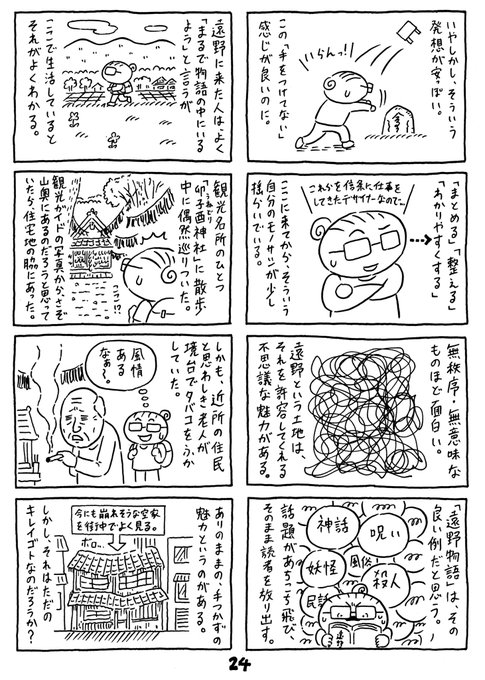 いやしかし、そういう
発想が安っぽい。
いらんっ!
この「手をつけてない」
感じが良いのに。
「まとめる」「整える」
「わかりやすくする」
これらを信条に仕事を
してきたデザイナーなので…
ここに来てから、そういう
自分のモノサシが少し
揺らいでいる。
無秩序・無意味な
ものほど面白い。
遠野という土地は、
それを許容してくれる
不思議な魅力がある。
「遠野物語」は、その
良い例だと思う。
呪い
神話
殺人
風俗
妖怪
民話
遠野
話題があちこち飛び、
そのまま読者を放り出す。
遠野に来た人は、よく
「まるで物語の中にいる
よう」と言うが
ここで生活していると
それがよくわかる。
観光名所のひとつ
「卯子酉神社」に散歩
中に偶然巡りついた。
ここ!?
観光ガイドの写真からさぞ
山奥にあるのだろうと思って
いたら住宅地の脇にあった。
しかも、近所の住民
と思わしき老人が
境台でタバコをふか
していた。
風情
ある
なぁ〜。
ありのままの、手つかずの
魅力というのがある。
今にも崩れそうな空家
を街中でよく見る。
ボロ…
しかし、それはただの
キレイゴトなのだろうか?
24